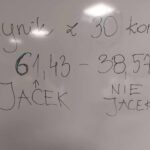 ynik z 30 kom
61,43 – 38,57
JACEK NIE
JACEK